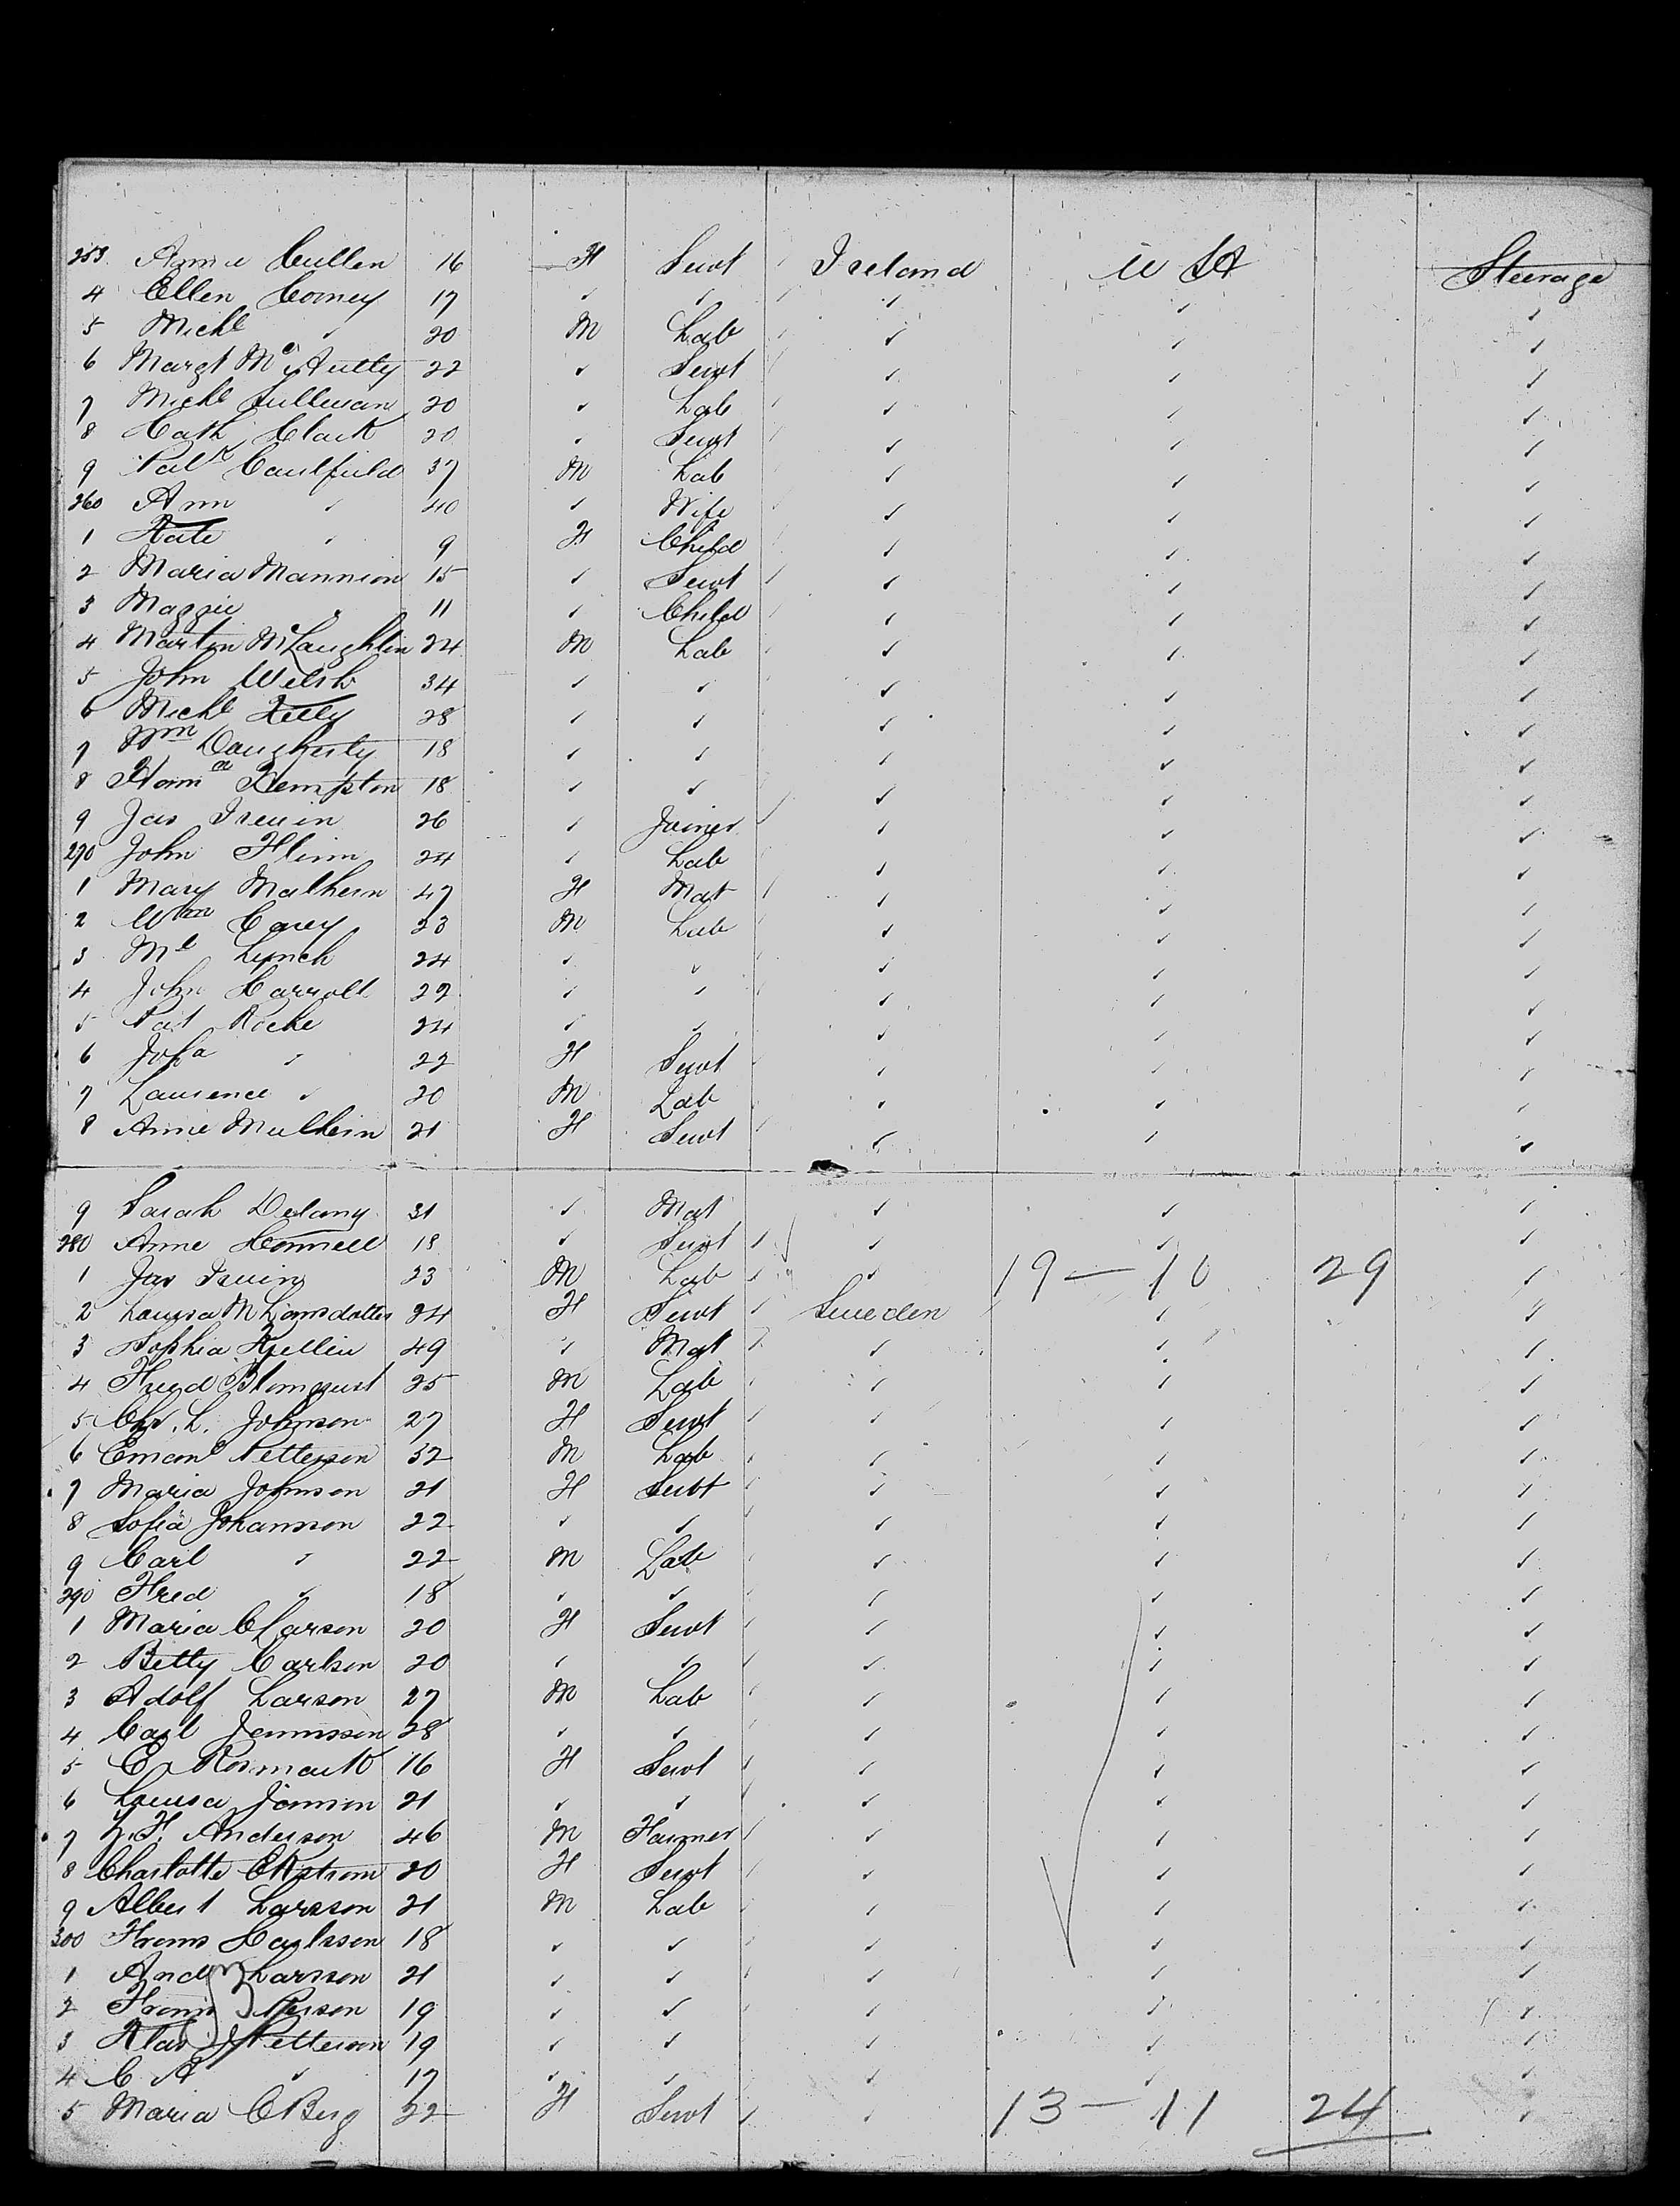 253 Annie Cullen 16 F Servt Ireland U St Steerage
4 Ellen Corney 17 " " " " "
5 Michl " 20 M Lab " " "
6 Margt McAulty 22 " Servt " " "
7 Michl Sullivan 20 " Lab " " "
8 Cath Clark 20 " Servt " " "
9 Patk Caulfield 37 M Lab " " "
260 Ann " 40 " Wife " " "
1 Kate " 9 F Child " " "
2 Maria Mannion 15 " Servt " " "
3 Maggie " 11 " Child " " "
4 Martin McLaughlin 24 M Lab " " "
5 John Welsh 34 " " " " "
6 Michl Kelly 28 " " " " "
7 Wm Daugherty 18 " " " " "
8 Kempston 18 " " " " "
9 Jas Irwin 26 " Joiner " " "
270 John Flinn 24 " Lab " " "
1 Mary Mulhern 47 F Mat " " "
2 Wm Carey 23 M Lab " " "
3 Ml Lynch 24 " " " " "
4 John Carroll 22 " " " " "
5 Pat Roche 24 " " " " "
6 Joha " 22 F Servt " " "
7 Laurence " 20 M Lab " " "
8 Annie Mulhern 21 F Servt " " "
9 Sarah Delany 31 " Mat " " "
280 Anne Connell 18 " Servt " " "
1 Jas Irwin 23 M Lab " 19 — 10 29 "
2 Louisa M Larsdotter 24 F Servt Sweden " "
3 Sophia Kjellin 49 " Mat " " "
4 Fred Blomquist 25 M Lab " " "
5 Chr. L. Johnson 27 F Servt " " "
6 Emanl Petterson 32 M Lab " " "
7 Maria Johnson 21 F Servt " " "
8 Sofia Johansson 22 " " " " "
9 Carl " 22 M Lab " " "
290 Fred " 18 " " " " "
1 Maria C Larson 20 F Servt " " "
2 Betty Carlson 20 " " " " "
3 Adolf Larson 27 M Lab " " "
4 Carl Jennsson 28 " " " " "
5 E Rosmark 16 F Servt " " "
6 Louisa Jonson 21 " " " " "
7 Anderson 46 M Farmer " " "
8 Charlotte Ekstrom 20 F Servt " " "
9 Albert Larsson 21 M Lab " " "
300 Frans Carlsson 18 " " " " "
1 And Larsson 21 " " " " "
2 Frans Person 19 " " " " "
3 Klas J Petterson 19 " " " " "
4 C A " 17 " " " " "
5 Maria C Berg 22 F Servt " 13 — 11 24 "